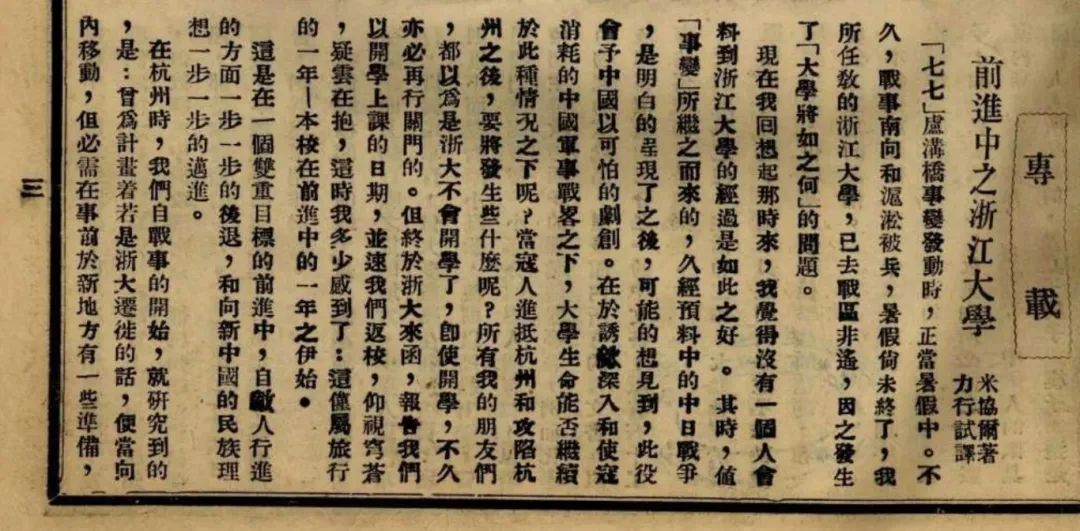 專載
前進中之浙江大學
米協爾著
力行試譯
「七七」盧溝橋事變發動時，正當暑假中。不
久，戰事南向和滬淞被兵，暑假尙未終了，我
所任敎的浙江大學，已去戰區非遙，因之發生
了「大學將如之何」的問題。
現在我回想起那時來，我覺得沒有一個人會
料到浙江大學的經過是如此之好。其時，値
「事變」所繼之而來的，久經預料中的中日戰爭
，是明白的呈現了之後，可能的想見到，此役
會予中國以可怕的劇創。在於誘敵深入和使寇
消耗的中國軍事戰畧之下，大學生命能否繼續
於此種情况之下呢？當寇人進抵杭州和攻陷杭
州之後，要將發生些什麼呢？所有我的朋友們
，都以爲是浙大不會開學了，卽使開學，不久
亦必再行關門的。但終於浙大來函，報吿我們
以開學上課的日期，並速我們返校，仰視穹蒼
，疑雲在抱，這時我多少感到了：這僅屬旅行
的一年—本校在前進中的一年之伊始。
這是在一個雙重目標的前進中，自敵人行進
的方面一步一步的後退，和向新中國的民族理
想一步一步的邁進。
在杭州時，我們自戰事的開始，就研究到的
，是：曾爲計畫着若是浙大遷徙的話，便當向
內移動，但必需在事前於新地方有一些準備，
三